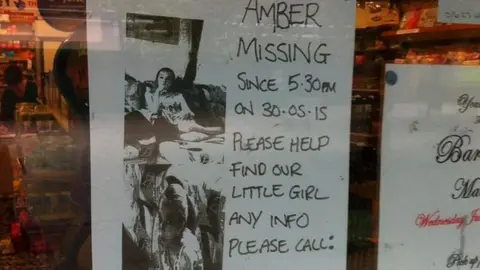 AMBER
MISSING
SINCE 5·30PM
ON 30·05·15
PLEASE HELP
FIND OUR
LITTLE GIRL
ANY INFO
PLEASE CALL:
You
Bar
Ma
Wednesday Ju
Pick up